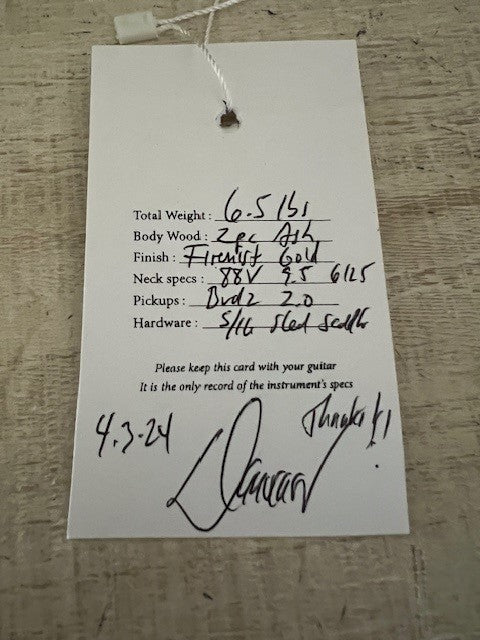 Total Weight : 6.5 lbs
Body Wood : 2pc Ash
Finish : Firemist Gold
Neck specs : 88V 9.5 6125
Pickups : 2.0
Hardware : S/16 Sled
Please keep this card with your guitar
It is the only record of the instrument's specs
Thanks!!
4.3.24